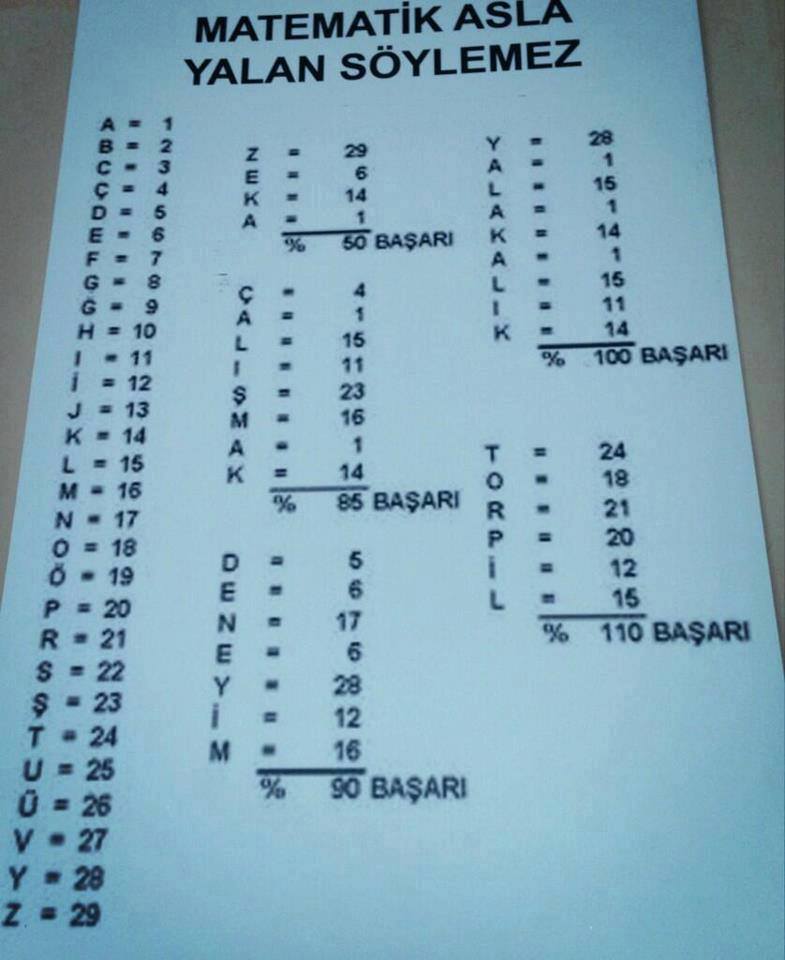 MATEMATİK ASLA
YALAN SÖYLEMEZ
A = 1
B = 2
C = 3
Ç = 4
D = 5
E = 6
F = 7
G = 8
Ğ = 9
H = 10
I = 11
İ = 12
J = 13
K = 14
L = 15
M = 16
N = 17
O = 18
Ö = 19
P = 20
R = 21
S = 22
Ş = 23
T = 24
U = 25
Ü = 26
V = 27
Y = 28
Z = 29
Z = 29
E = 6
K = 14
A = 1
% 50 BAŞARI
Ç = 4
A = 1
L = 15
I = 11
Ş = 23
M = 16
A = 1
K = 14
% 85 BAŞARI
D = 5
E = 6
N = 17
E = 6
Y = 28
İ = 12
M = 16
% 90 BAŞARI
Y = 28
A = 1
L = 15
A = 1
K = 14
A = 1
L = 15
I = 11
K = 14
% 100 BAŞARI
T = 24
O = 18
R = 21
P = 20
İ = 12
L = 15
% 110 BAŞARI